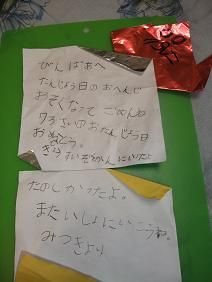 びんばあへ
たんじょう日のおへんじ
おそくなって ごめんね
73さいのおたんじょう日
おめとう。
きょうすいぞくかんにいたよ
たのしかったよ。
またいしょにいこうね。
みつきより